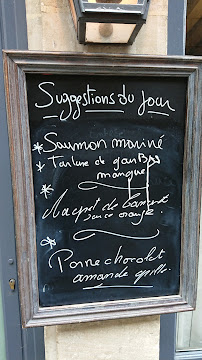 Suggestions du jour
* Saumon mariné
* Tartare de gambas
mangue
* Magret de canard
sauce orange.
* Poire chocolat
amande grillé.